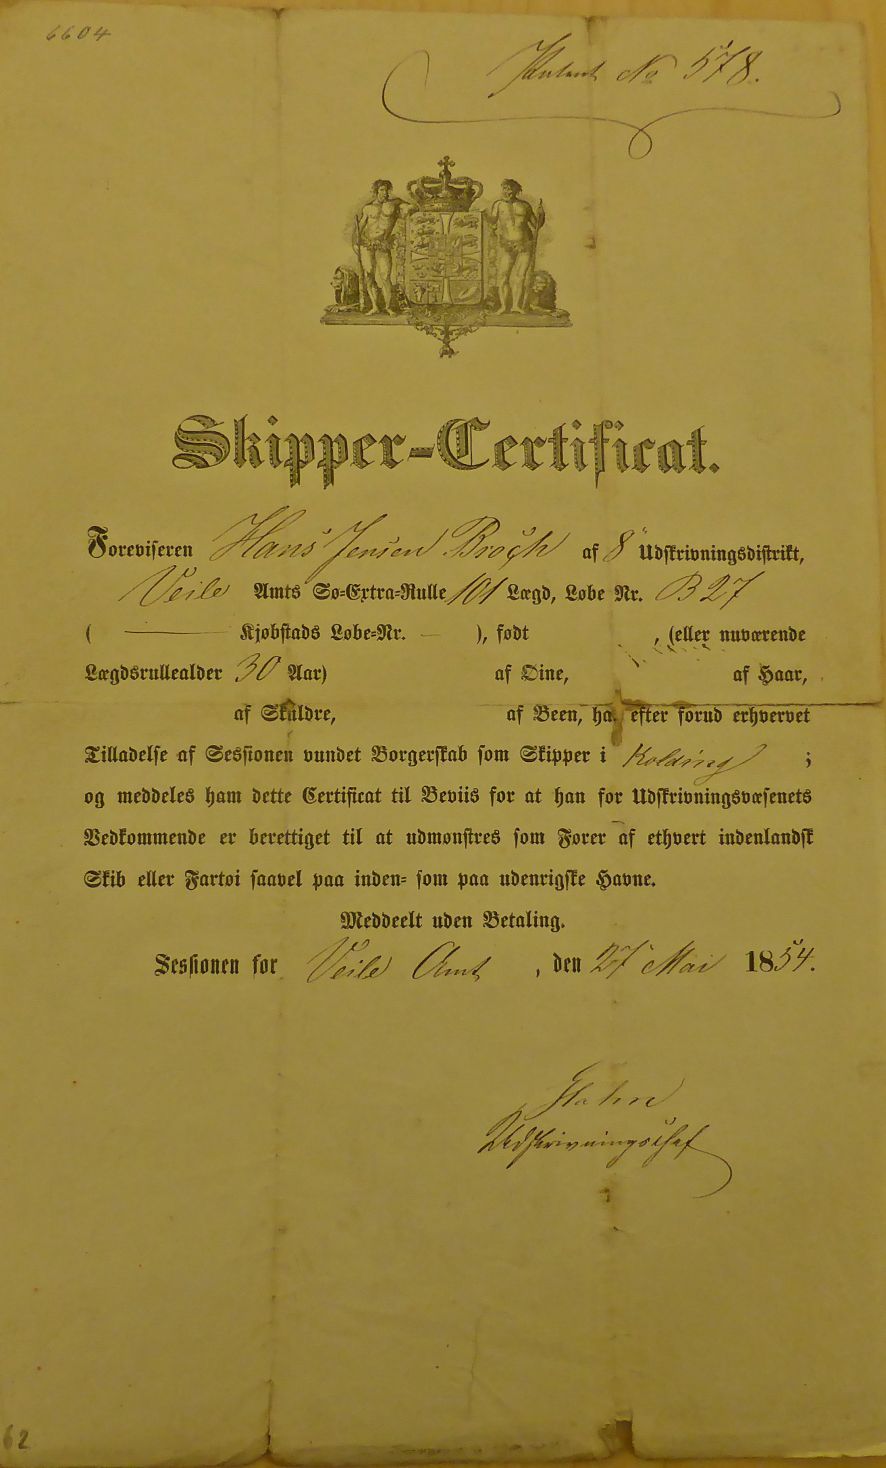 6604
Patent No 578.
Skipper-Certificat.
Foreviseren Hans Jensen Broch af 8' Udskrivningsdistrikt,
Veile Amts Sø=Extra=Rulle 101 Lægd, Løbe Nr. B27
( — Kjøbstads Løbe=Nr. — ), født , (eller nuværende
Lægdsrullealder 30 Aar) af Øine, af Haar,
af Skuldre, af Been, har efter forud erhvervet
Tilladelse af Sessionen vundet Borgerskab som Skipper i Kolding ;
og meddeles ham dette Certificat til Beviis for at han for Udskrivningsvæsenets
Vedkommende er berettiget til at udmønstres som Fører af ethvert indenlandsk
Skib eller Fartøi saavel paa inden= som paa udenrigske Havne.
Meddeelt uden Betaling.
Sessionen for Veile Amt , den 27 Mai 1854.
Udskrivningschef
62